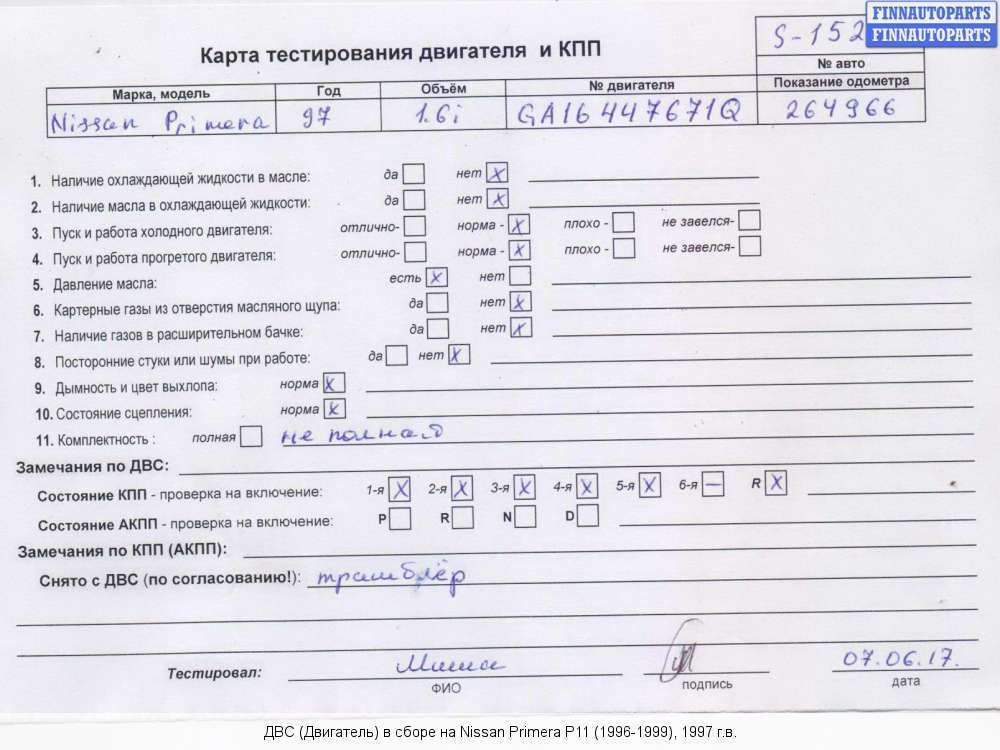 FINNAUTOPARTS
FINNAUTOPARTS
S-152
Карта тестирования двигателя и КПП
№ авто
Марка, модель Год Объём № двигателя Показание одометра
Nissan Primera 97 1.6i GA16 447671Q 264966
1. Наличие охлаждающей жидкости в масле: да нет X
2. Наличие масла в охлаждающей жидкости: да нет X
3. Пуск и работа холодного двигателя: отлично- норма - X плохо - не завелся-
4. Пуск и работа прогретого двигателя: отлично- норма - X плохо - не завелся-
5. Давление масла: есть X нет
6. Картерные газы из отверстия масляного щупа: да нет X
7. Наличие газов в расширительном бачке: да нет X
8. Посторонние стуки или шумы при работе: да нет X
9. Дымность и цвет выхлопа: норма X
10. Состояние сцепления: норма X
11. Комплектность : полная не полная
Замечания по ДВС:
Состояние КПП - проверка на включение: 1-я X 2-я X 3-я X 4-я X 5-я X 6-я — R X
Состояние АКПП - проверка на включение: P R N D
Замечания по КПП (АКПП):
Снято с ДВС (по согласованию!): трамблёр
Тестировал: Миша 07.06.17.
ФИО подпись дата
ДВС (Двигатель) в сборе на Nissan Primera P11 (1996-1999), 1997 г.в.